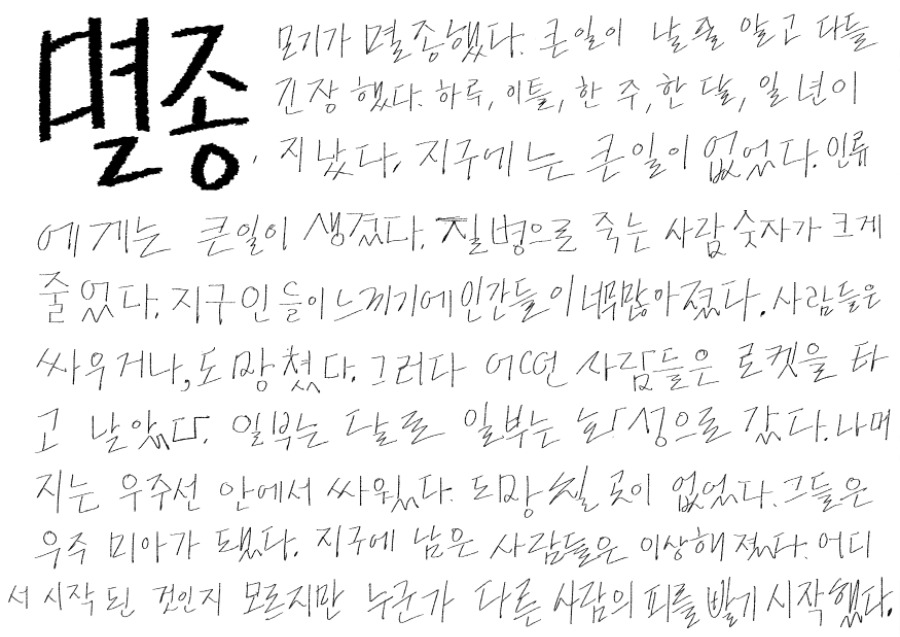 멸종
모기가 멸종했다. 큰일이 날 줄 알고 다들
긴장 했다. 하루, 이틀, 한 주, 한 달, 일 년이
지났다. 지구에는 큰일이 없었다. 인류
에게는 큰일이 생겼다. 질병으로 죽는 사람 숫자가 크게
줄었다. 지구인들이 느끼기에 인간들이 너무 많아졌다. 사람들은
싸우거나, 도망쳤다. 그러다 어떤 사람들은 로켓을 타
고 날았다. 일부는 달로 일부는 화성으로 갔다. 나머
지는 우주선 안에서 싸웠다. 도망칠 곳이 없었다. 그들은
우주 미아가 됐다. 지구에 남은 사람들은 이상해졌다. 어디
서 시작된 것인지 모르지만 누군가 다른 사람의 피를 빨기 시작했다.